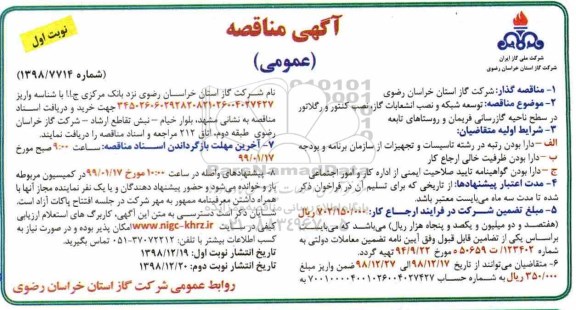 آگهی مناقصه
(عمومی)
نوبت اول
شرکت ملی گاز ایران
شرکت گاز استان خراسان رضوی
(شماره ۱۳۹۸/۷۷۱۴)
۱- مناقصه گذار: شرکت گاز استان خراسان رضوی
۲- موضوع مناقصه: توسعه شبکه و نصب انشعابات گاز، نصب کنتور و رگلاتور
در سطح ناحیه گازرسانی فریمان و روستاهای تابعه
۳- شرایط اولیه متقاضیان:
الف – دارا بودن رتبه در رشته تاسیسات و تجهیزات از سازمان برنامه و بودجه
ب – دارا بودن ظرفیت خالی ارجاع کار
ج – دارا بودن گواهینامه تایید صلاحیت ایمنی از اداره کار و امور اجتماعی
۴- مدت اعتبار پیشنهادها: از تاریخی که برای تسلیم آن در فراخوان ذکر
شده تا مدت سه ماه می‌بایست معتبر باشد.
۵- مبلغ تضمین شرکت در فرایند ارجاع کار: ۷۰۲/۱۵۰/۰۰۰ ریال
(هفتصد و دو میلیون و یکصد و پنجاه هزار ریال) می‌باشد که می‌بایست
براساس یکی از تضامین قابل قبول وفق آیین نامه تضمین معاملات دولتی به
شماره ۱۲۳۴۰۲/ت ۵۰۶۵۹ ه مورخ ۹۴/۹/۲۲ تهیه گردد.
۶- متقاضیان می‌توانند از تاریخ ۹۸/۱۲/۱۷ الی ۹۸/۱۲/۲۷ ضمن واریز مبلغ
۳۵۰/۰۰۰ ریال به شماره حساب ۴۰۰۱۰۲۶۰۰۴۰۲۷۴۲۷ به
نام شرکت گاز استان خراسان رضوی نزد بانک مرکزی ج.ا.ا با شناسه واریز
جهت خرید و دریافت اسناد
مناقصه به نشانی مشهد، بلوار خیام – نبش تقاطع ارشاد – شرکت گاز خراسان
رضوی طبقه دوم، اتاق ۲۱۲ مراجعه و اسناد مناقصه را دریافت نمایند.
۷- آخرین مهلت بازگرداندن اسناد مناقصه: ساعت ۹:۰۰ صبح مورخ
۹۹/۰۱/۱۷
۸- پیشنهادهای واصله در ساعت ۱۰:۰۰ مورخ ۹۹/۰۱/۱۷ در کمیسیون مربوطه
باز و خوانده می‌شود و حضور پیشنهاد دهندگان و یا یک نفر نماینده مجاز آنها با
همراه داشتن معرفینامه ممهور به مهر شرکت در جلسه افتتاح پاکات آزاد است.
شایان ذکر است دسترسی به متن این آگهی، کاربرگ های استعلام ارزیابی
کیفی در سایت www.nigc-khrz.ir امکان پذیر بوده و در صورت نیاز به
کسب اطلاعات بیشتر با تلفن: ۳۷۰۷۲۲۱۲-۰۵۱ تماس بگیرید.
تاریخ انتشار نوبت اول: ۱۳۹۸/۱۲/۱۹
تاریخ انتشار نوبت دوم: ۱۳۹۸/۱۲/۲۰
روابط عمومی شرکت گاز استان خراسان رضوی